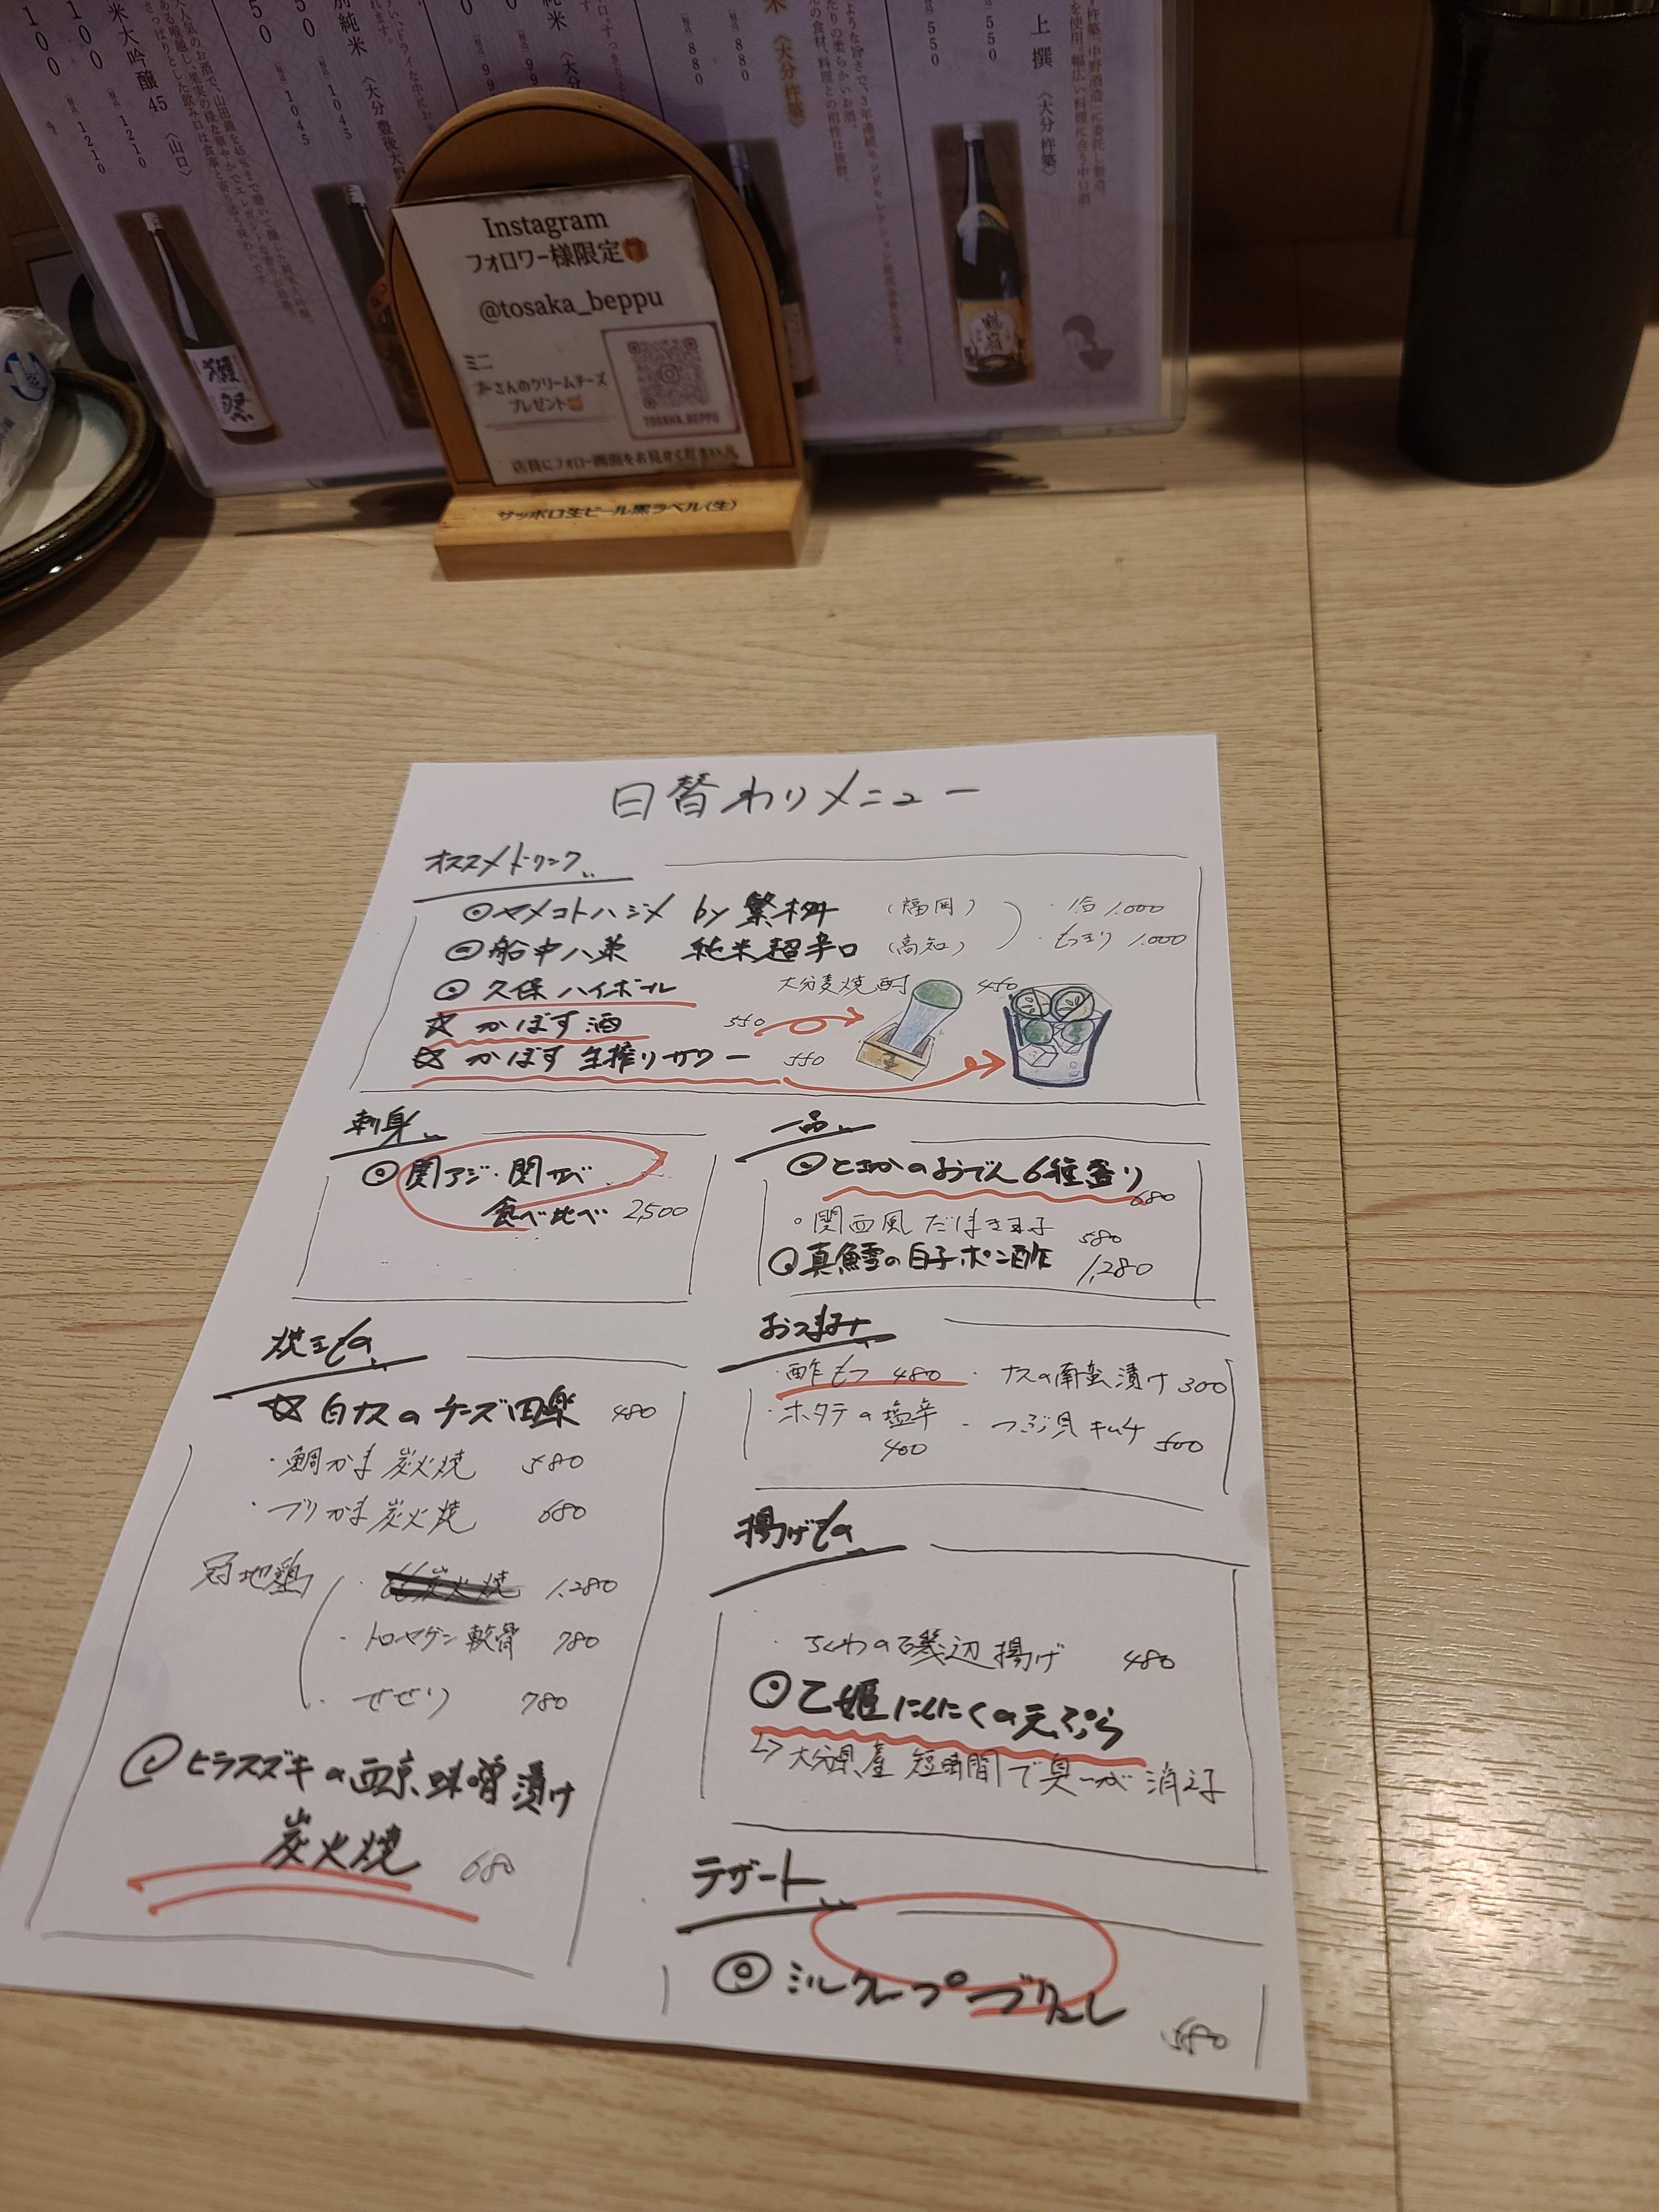 上撰 〈大分杵築〉
550
550
880
880
〈大分杵築〉
純米 〈大分豊後大野
1045
1045
米大吟醸45 〈山口〉
1210
1210
獺祭
Instagram
フォロワー様限定
@tosaka_beppu
ミニ
さんのクリームチーズ
プレゼント
TOSAKA_BEPPU
店員にフォロー画面をお見せください
サッポロ生ビール黒ラベル〈生〉
日替わりメニュー
オススメドリンク
ヤメコトハジメ by 繁桝 (福岡) ・1合 1.000
船中八策 純米超辛口 (高知) ・もっきり 1.000
久保ハイボール 大分麦焼酎 450
☆ かぼす酒 550
☆ かぼす生搾りサワー 550
刺身
関アジ・関サバ
食べ比べ 2,500
一品
とさかのおでん6種盛り
680
関西風だしまき玉子 580
真鱈の白子ポン酢 1,280
焼きもの
☆ 白ナスのチーズ田楽 480
・鯛かま炭火焼 580
・ブリかま炭火焼 680
冠地鶏 ・もも炭火焼 1.280
・トロヤゲン軟骨 780
・せせり 780
ヒラスズキの西京味噌漬け
炭火焼 680
おつまみ
・酢もつ 480 ・ナスの南蛮漬け 300
・ホタテの塩辛 ・つぶ貝キムチ 500
400
揚げもの
・ちくわの磯辺揚げ 480
乙姫にんにくの天ぷら
↳大分県産 短時間で臭いが消える
デザート
ミルクレープブリュレ
580